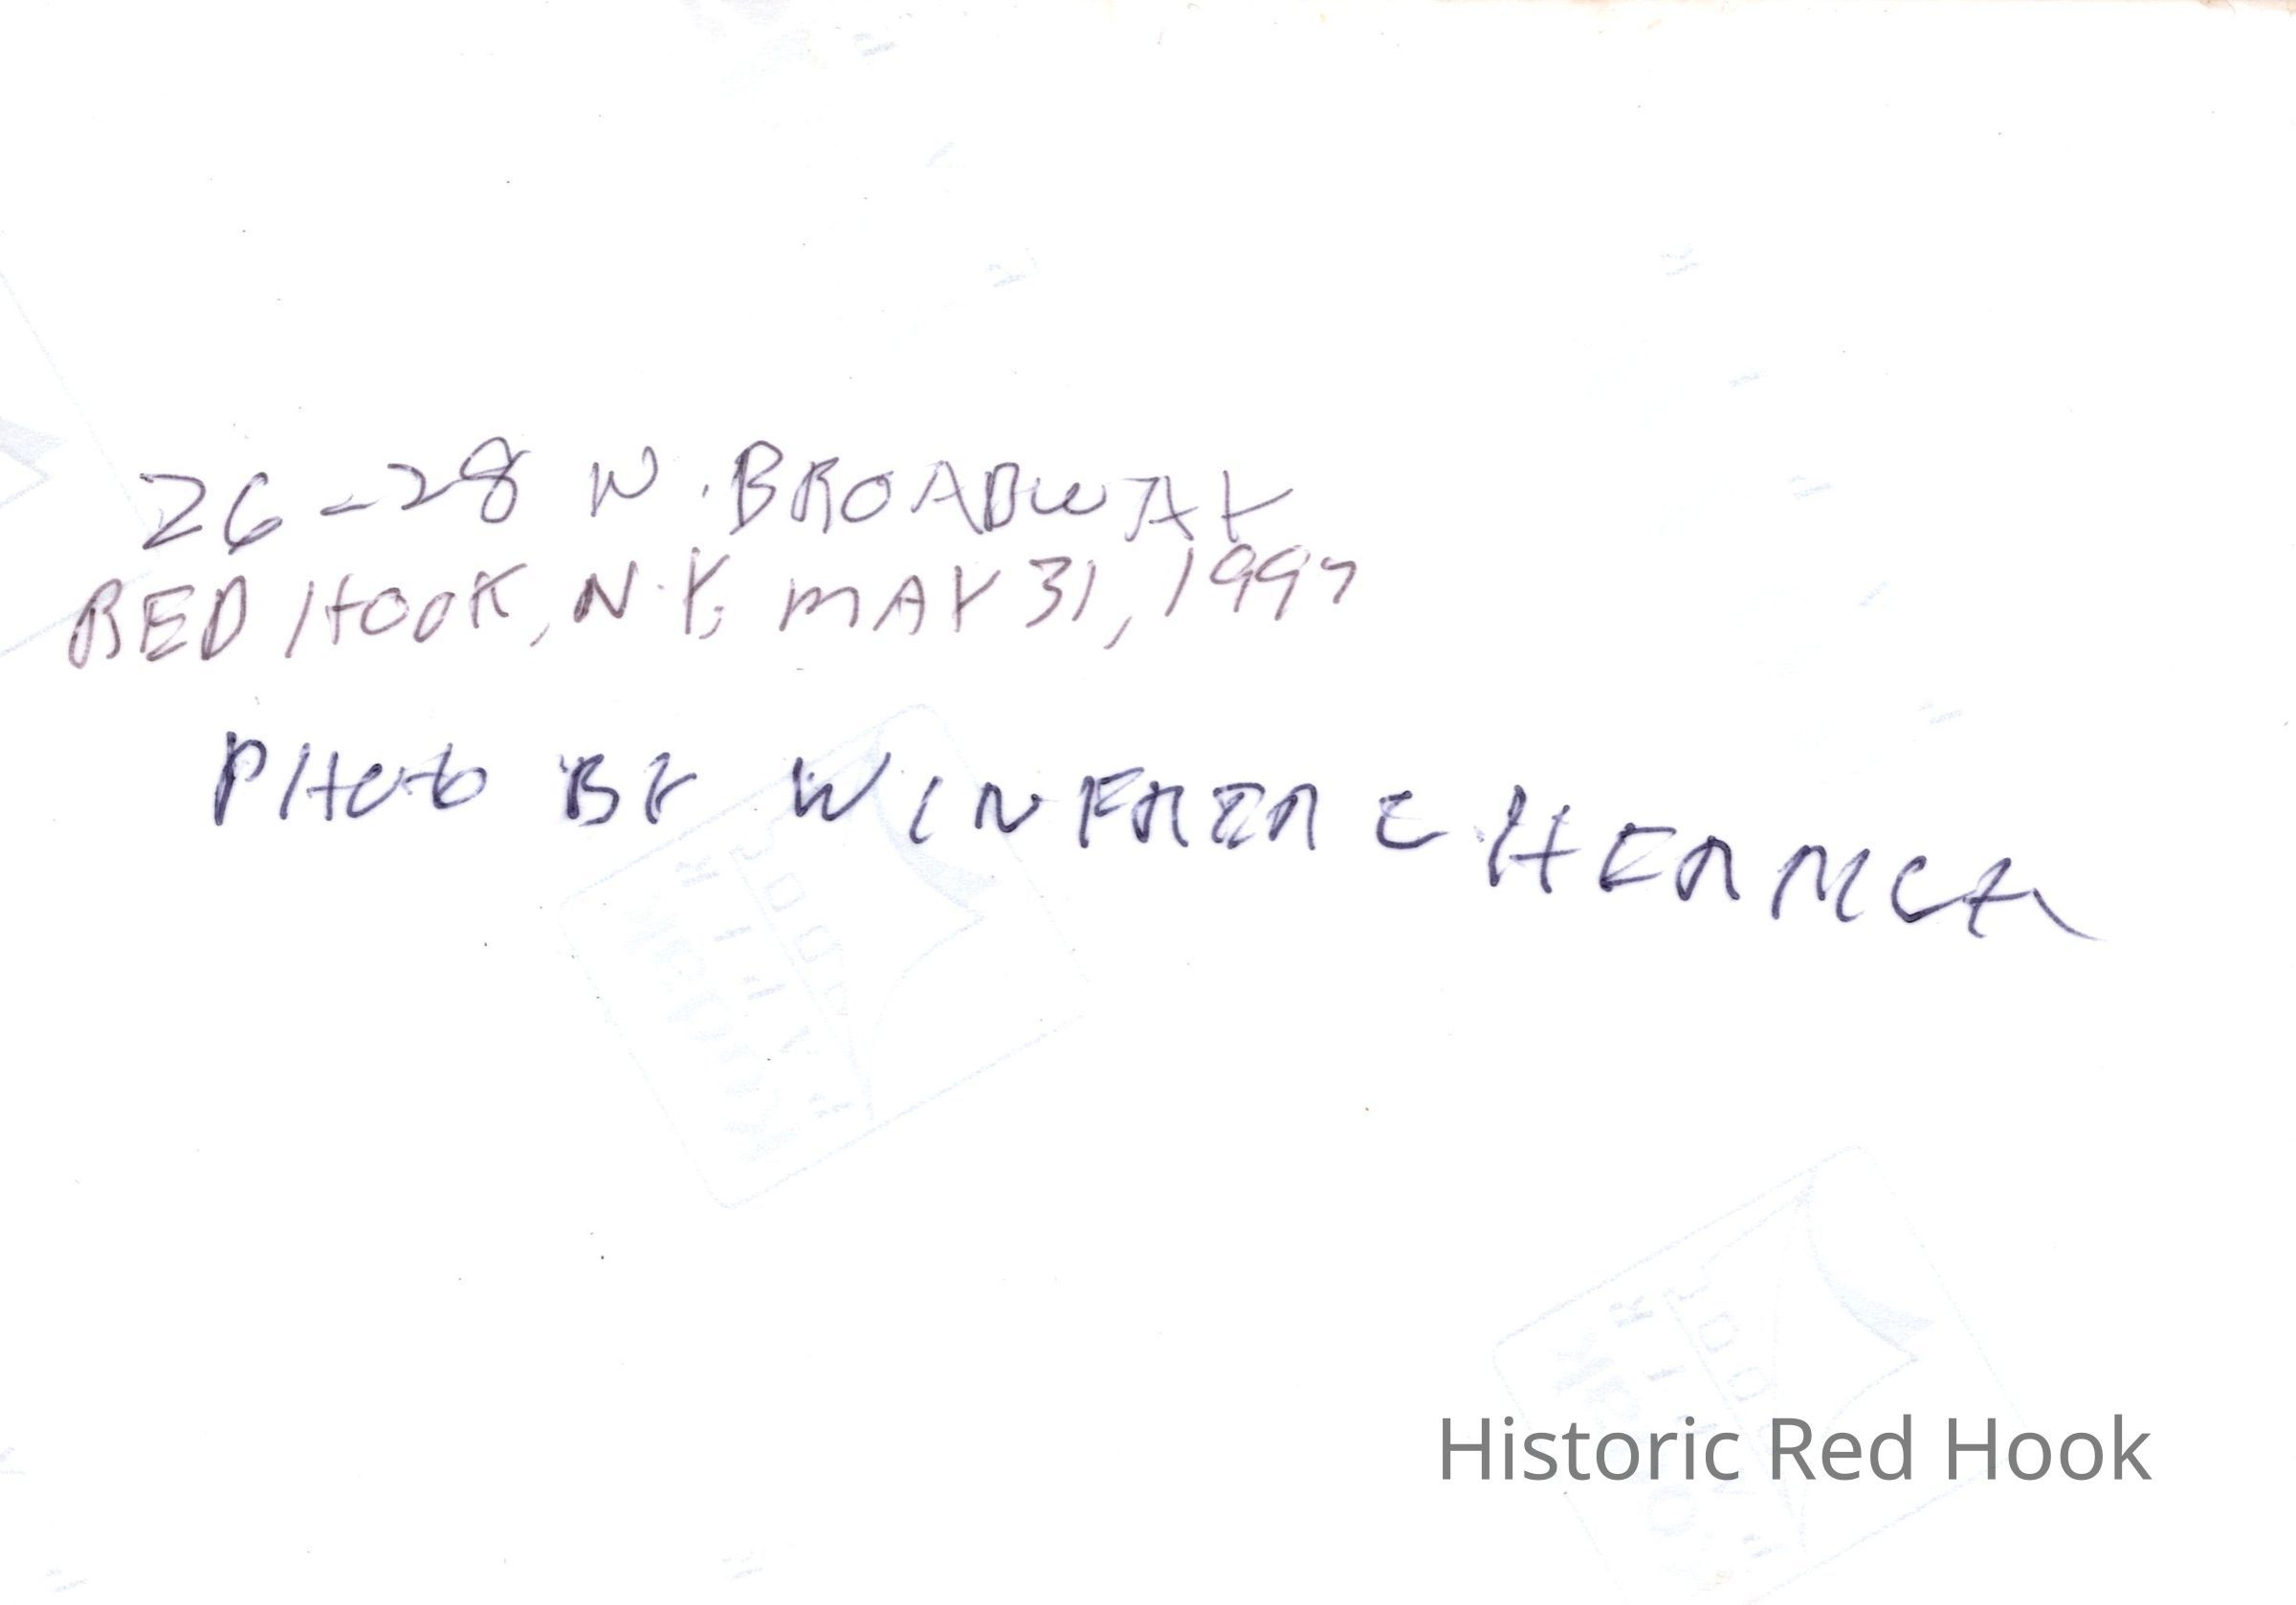 26-28 N. BROADWAY
RED HOOK, N.Y. MAY 31, 1997
PHOTO BY
Historic Red Hook